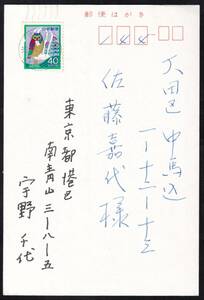 郵便はがき
40
144
大田区中馬込
一ー十二ー十三
佐藤嘉代様
東京都港区
南青山三ー八ー五
宇野千代